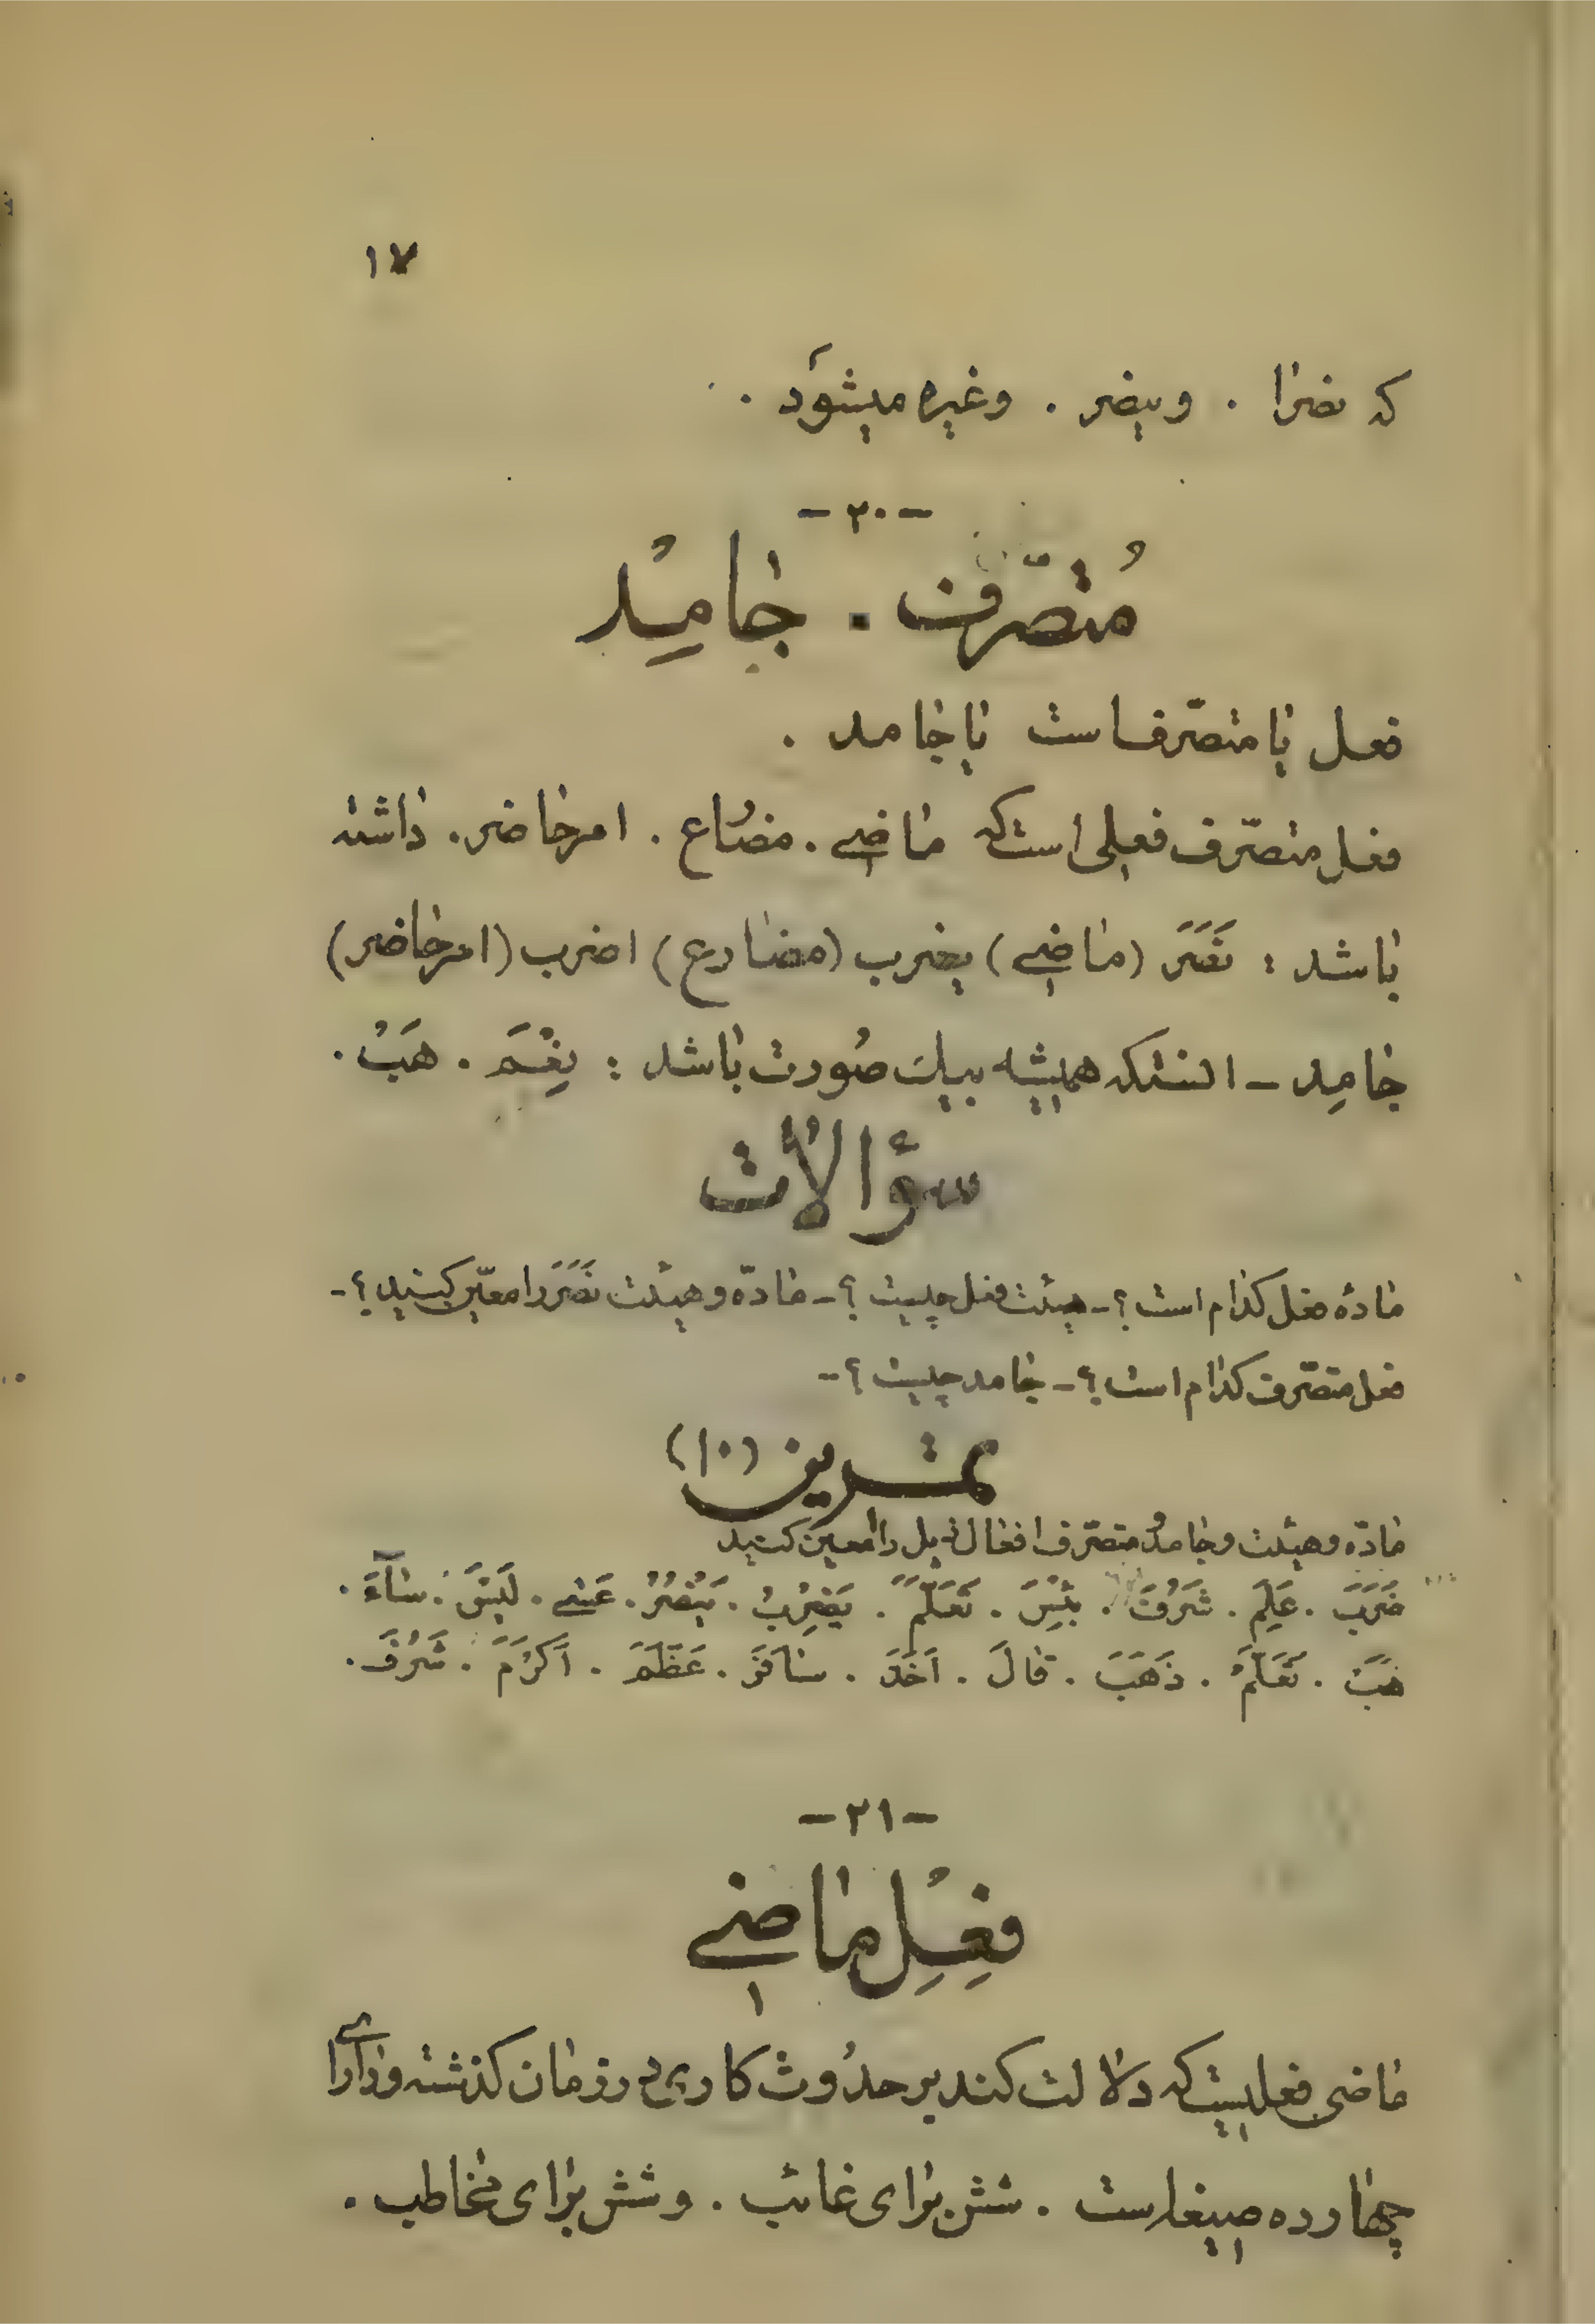 ١٧
که نصرا . وینصر . وغیره میشود .
-٢٠-
مُتصرّف . جامِد
فعل یا متصرّف است یا جامد .
فعل متصرّف فعلی است که ماضی . مضارع . امرحاضر . داشته
باشد : نَصَرَ (ماضی) یضرب (مضارع) اضرب (امرحاضر)
جامِد - آنستکه همیشه بیک صُورت باشد : نِعْمَ . هَبْ .
سؤالات
مادهٔ فعل کدام است ؟- هیئت فعل چیست ؟- مادّه و هیئت نَصَرَ را معیّن کنید ؟-
فعل متصرّف کدام است ؟- جامد چیست ؟-
تمرین (١٠)
مادّه و هیئت و جامد و متصرّف افعال ذیل را معین کنید
ضَرَبَ . عَلِمَ . شَرُفَ . بِئْسَ . تَعَلَّمَ . یَضْرِبُ . یَنْصُرُ . عَسٰی . لَیْسَ . سٰآءَ .
هَبْ . تَعَلَّمْ . ذَهَبَ . قٰالَ . اَخَذَ . سٰافَرَ . عَظَّمَ . اَکْرَمَ . شَرُفَ .
-٢١-
فِعْلِ ماضی
ماضی فعلیست که دلالت کند بر حدُوث کاری در زمان گذشته و دارای
چهارده صیغه است . شش برای غائب . و شش برای مخاطب .